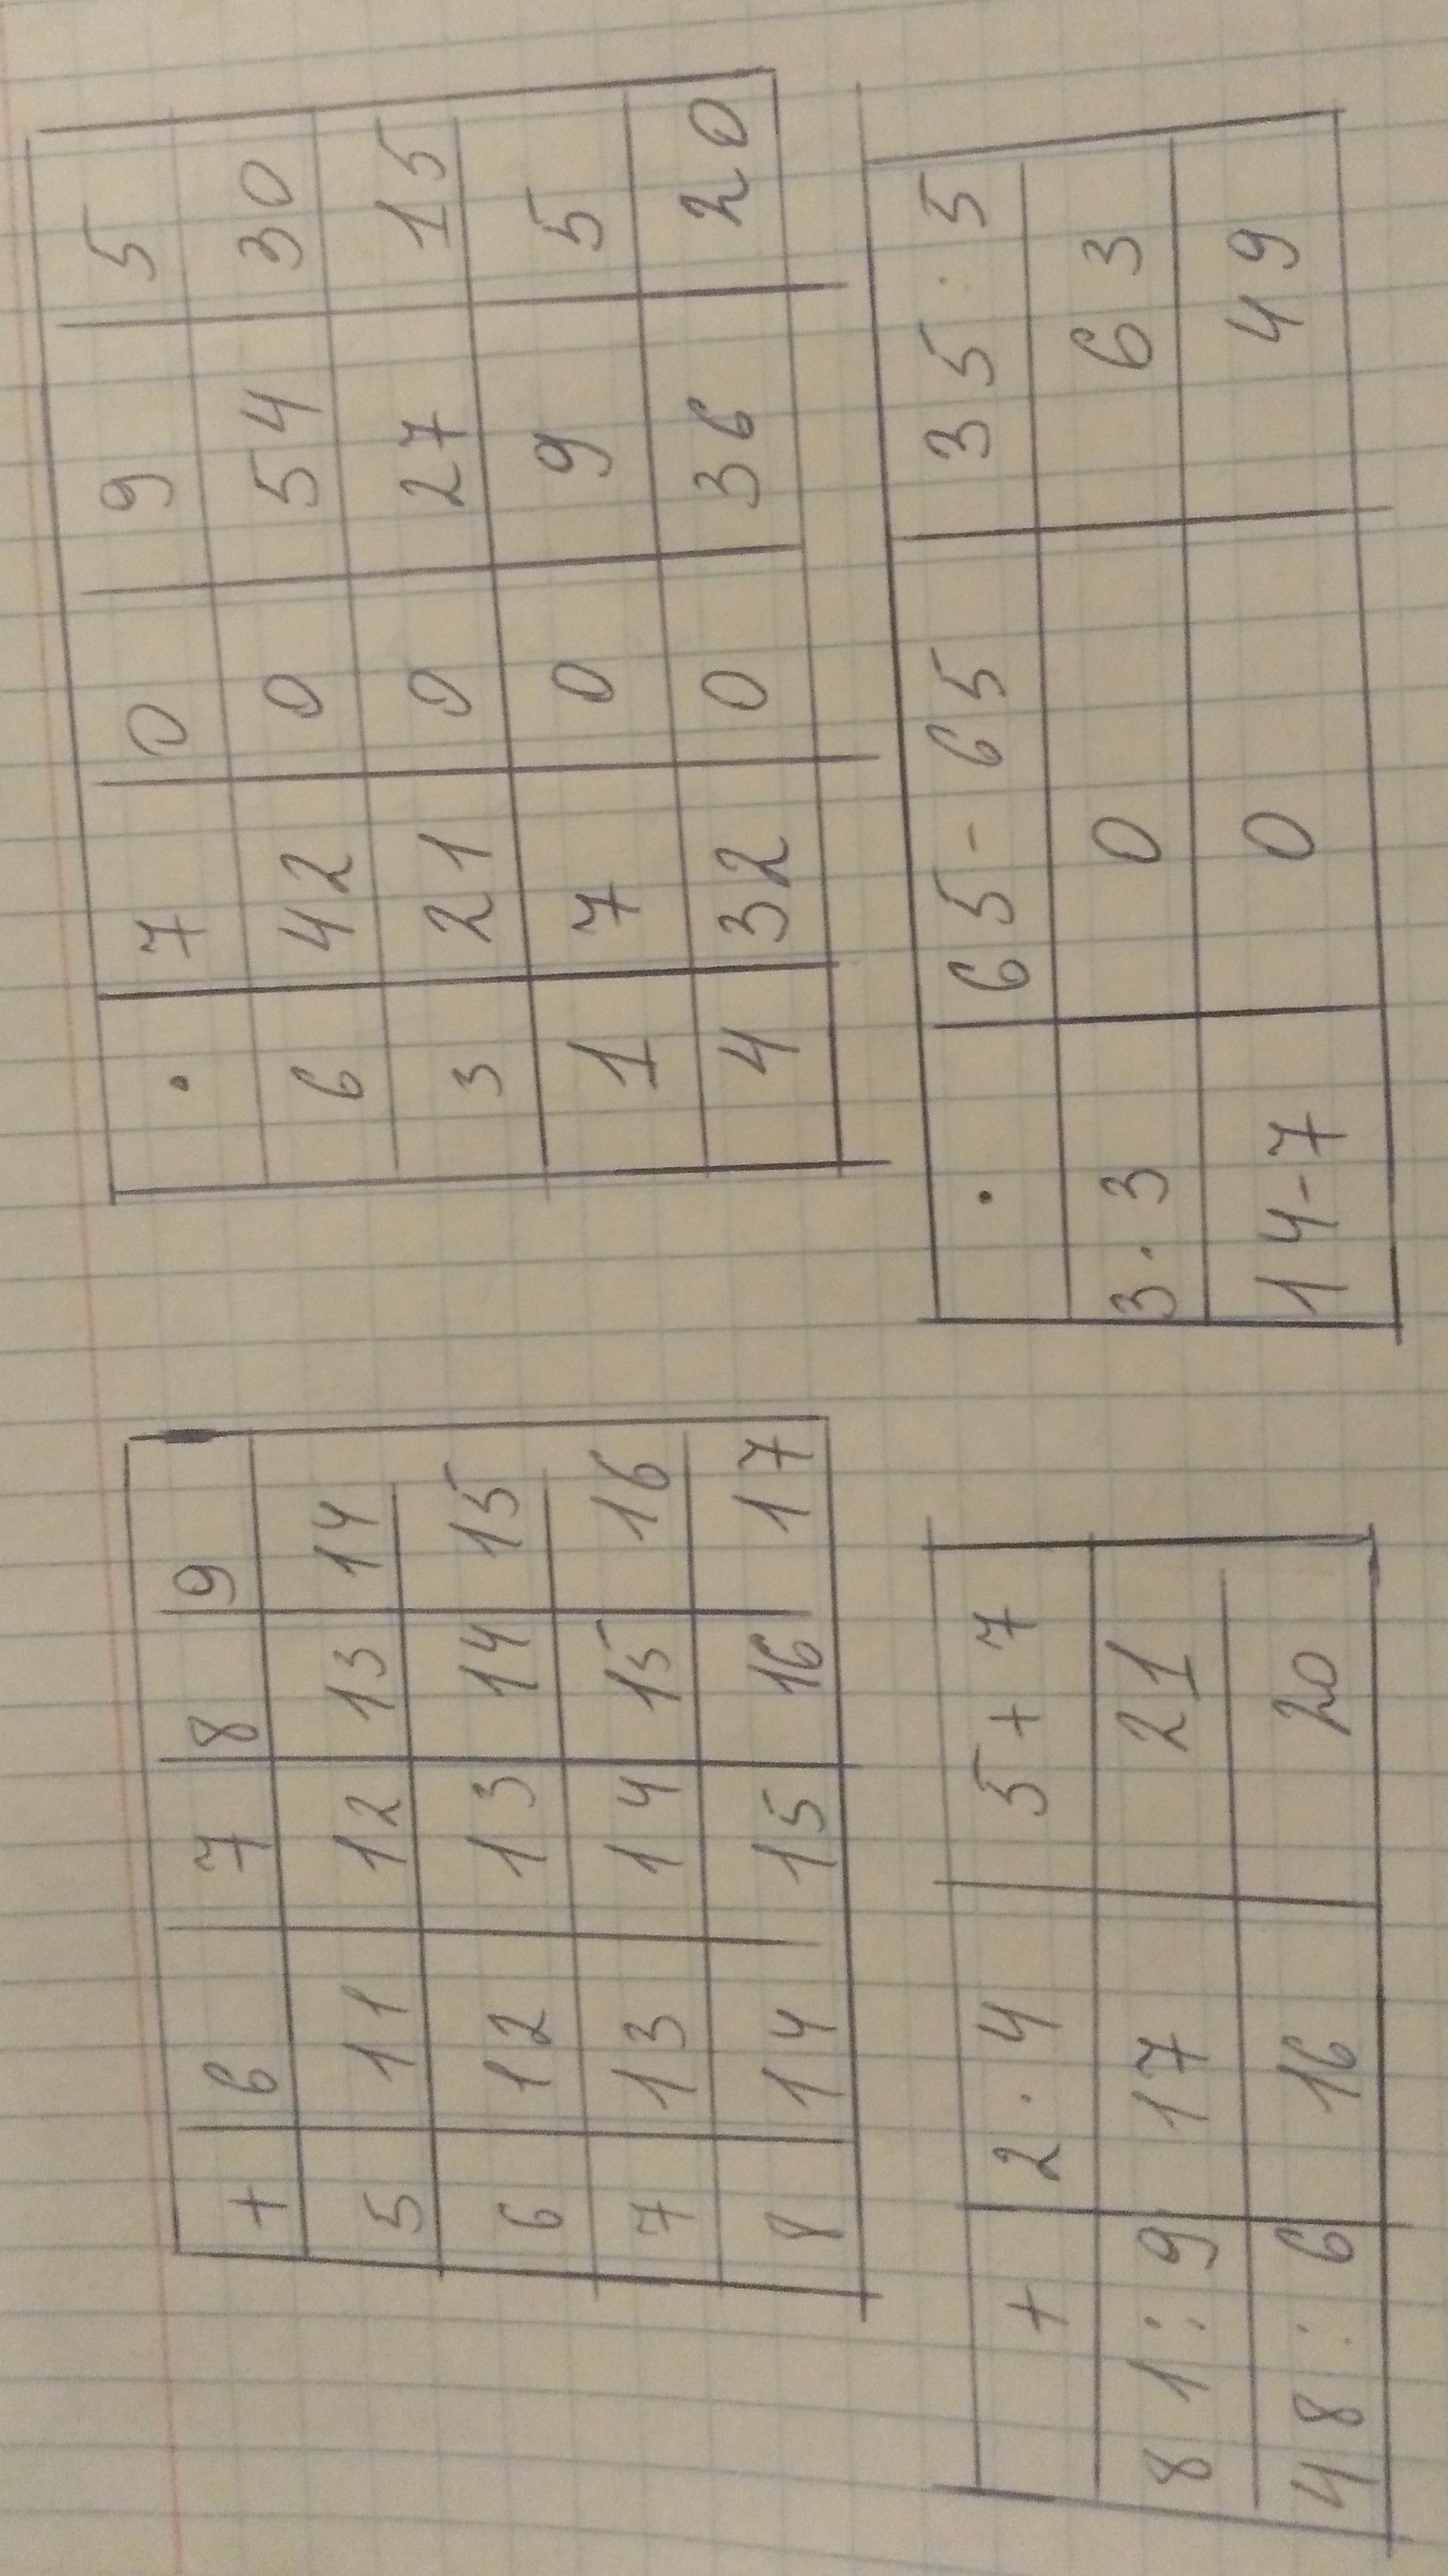 + 6 7 8 9
5 11 12 13 14
6 12 13 14 15
7 13 14 15 16
8 14 15 16 17
· 7 0 9 5
6 42 0 54 30
3 21 0 27 15
1 7 0 9 5
4 32 0 36 20
+ 2·4 5+7
81:9 17 21
48:6 16 20
· 65-65 35:5
3·3 0 63
14-7 0 49